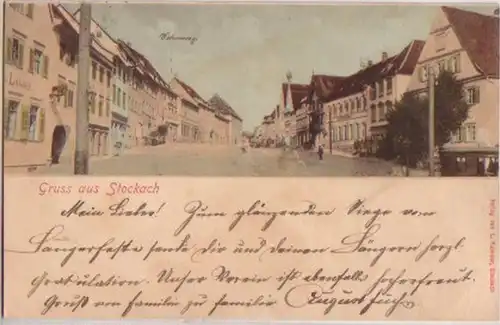 Wohnung
Gruss aus Stockach
Mein Lieber! Zum glänzenden Siege vom
Sängerfeste sende Dir und deinen Sängern herzl.
Gratulation. Unser Verein ist ebenfalls hocherfreut.
Gruß von Familie zu Familie August